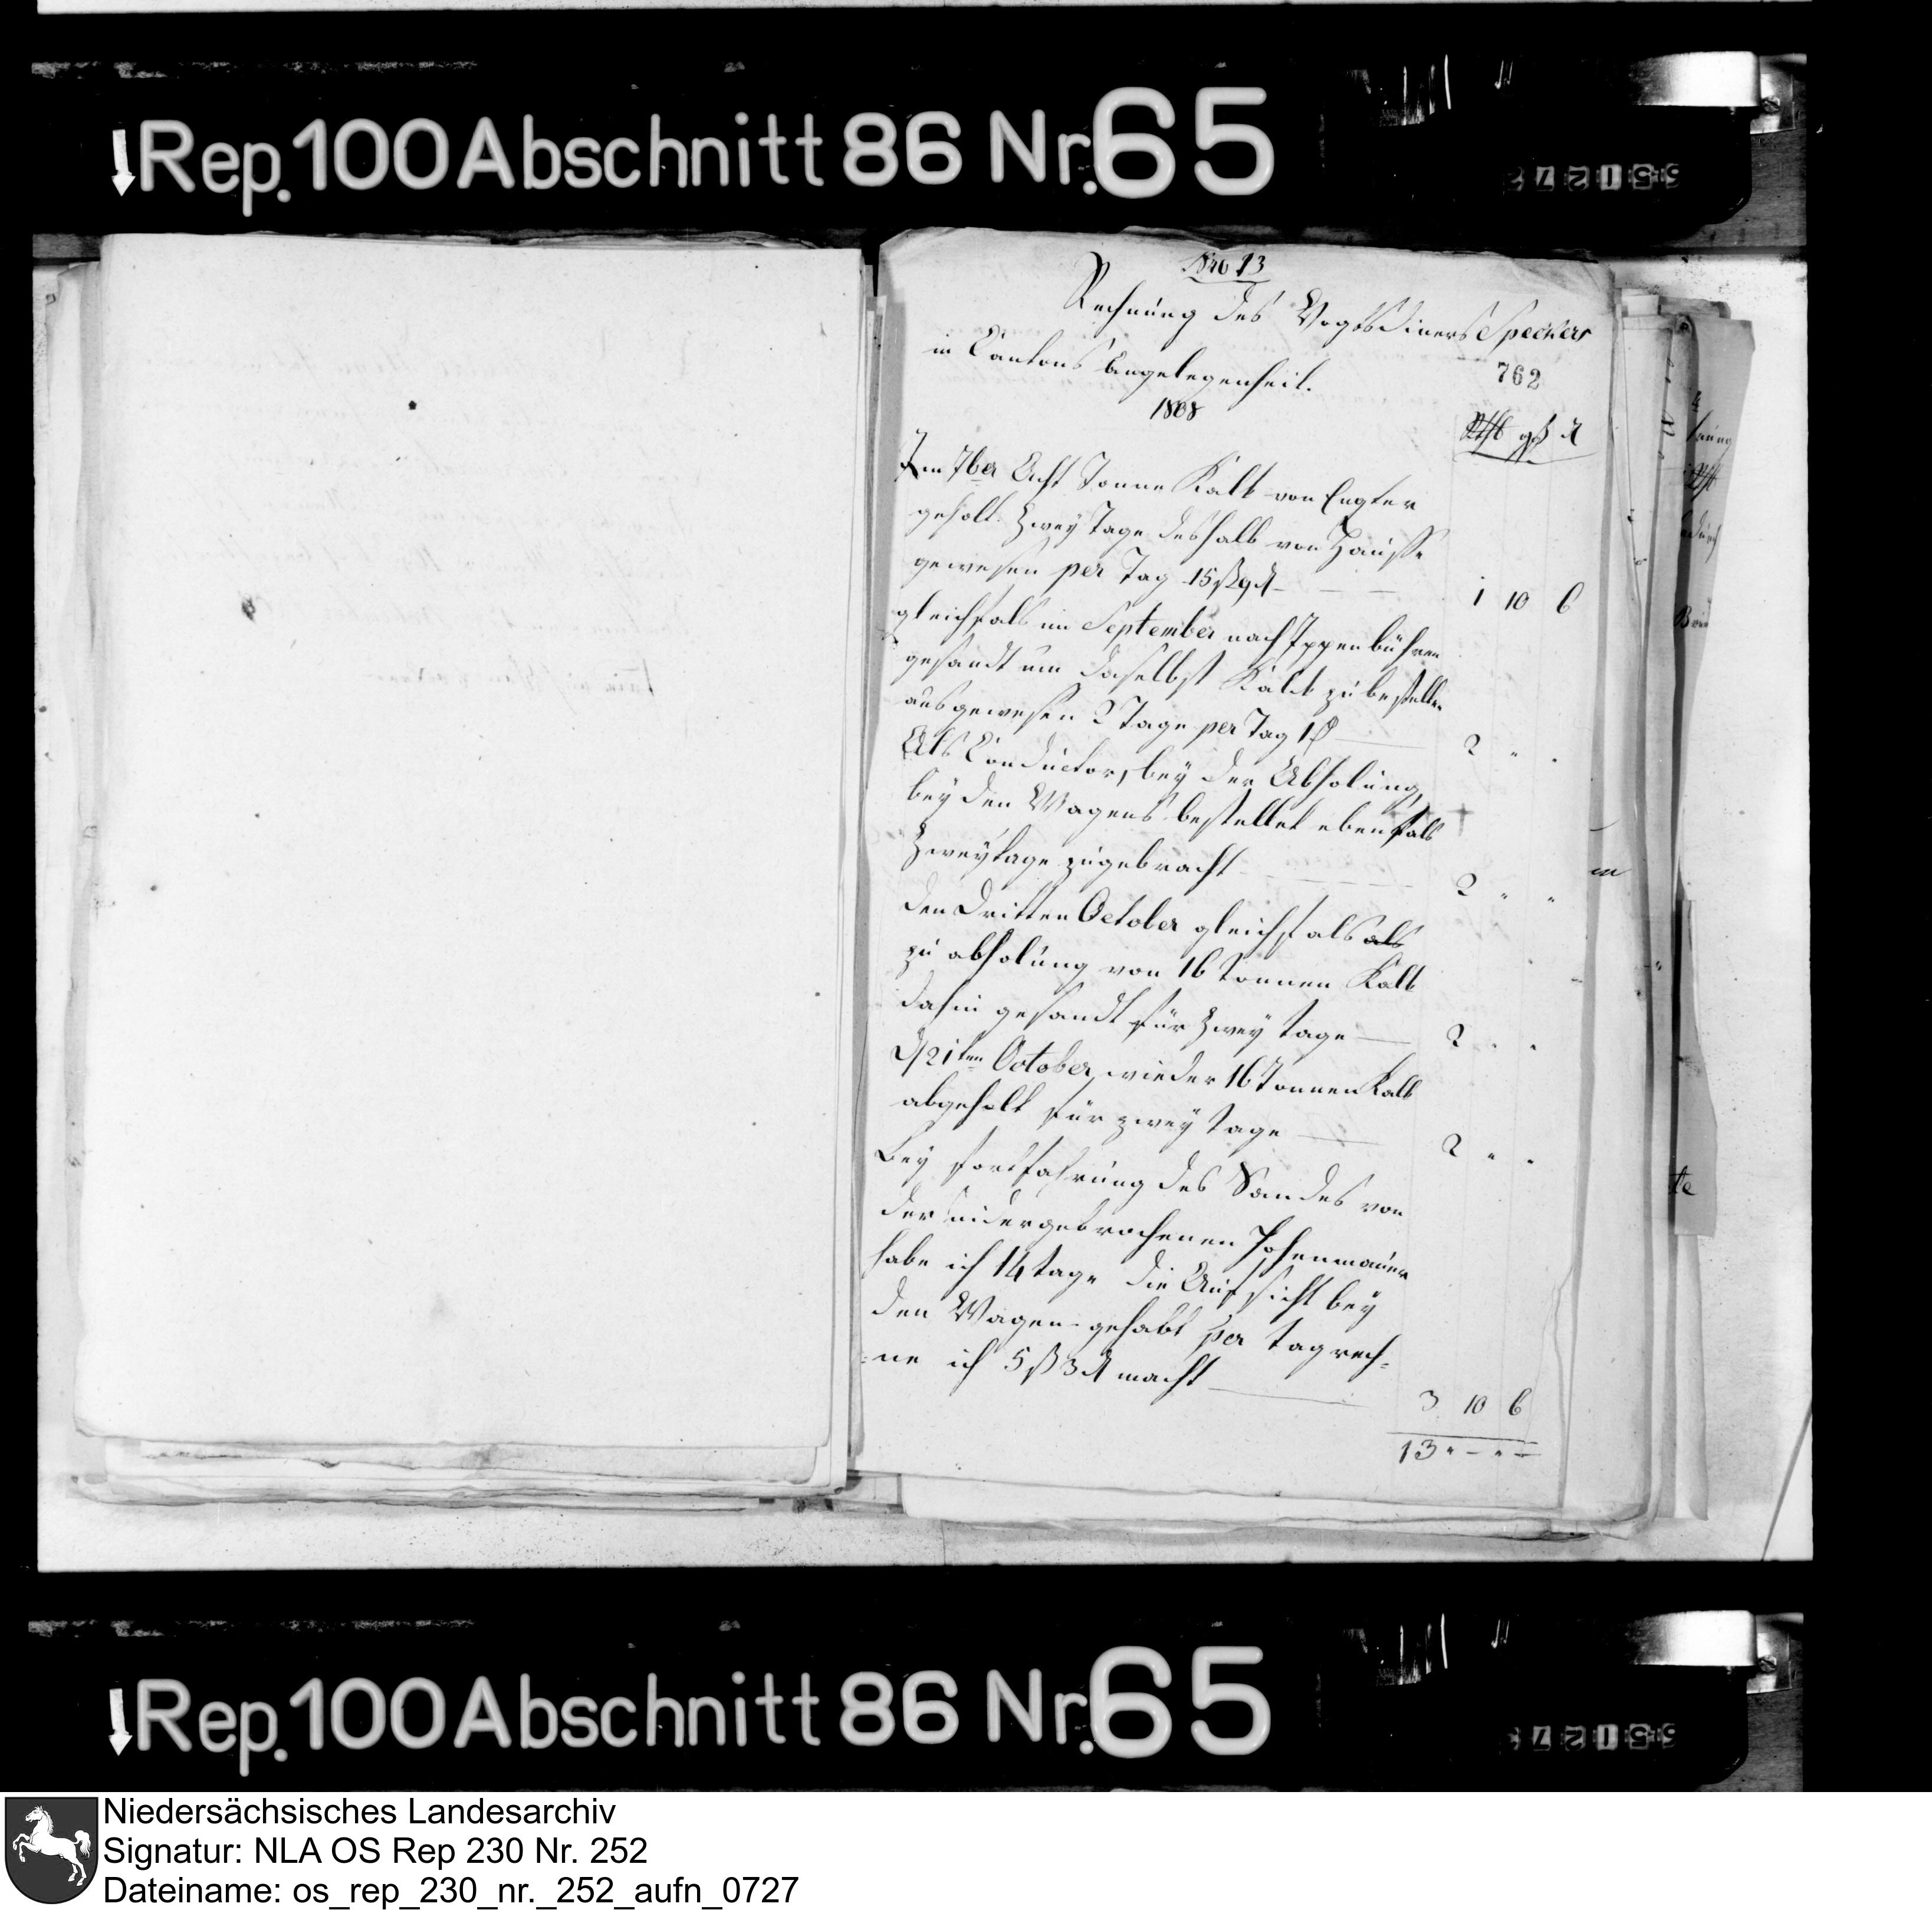 Rep. 100 Abschnitt 86 Nr. 65
Nro 13
Rechnung des Vogtsdieners Speckers
in Cantons Angelegenheit.
762
1808
Rthl gß d
Im 7ber Acht Tonne Kalk von Engter
geholt. Zwey Tage deshalb von Hausse
gewesen per Tag 15ß9d — — — 1 10 6
gleichfals im September nach Ippenbühren
gesandt um daselbst Kalck zu bestellen
ausgewesen 2 Tage per Tag 1 — 2 " "
Als Conductor, bey der Abholung,
bey den Wagens bestellet ebenfals
Zweytage zugebracht — — — 2 " "
den dritten October gleichfals als
zu abholung von 16 Tonnen Kalk
dahin gesandt für Zwey tage — 2 " "
d 21ten October, wieder 16 Tonnen Kalk
abgeholt für zwey tage — 2 " "
Bey fortfahrung des Sandes von
der nidergebrochenen Hohenmauer
habe ich 14 tage die Aufsicht bey
den Wagen gehabt per tag rech=
=ne ich 5ß3d macht — 3 10 6
13 " — " —
Rep. 100 Abschnitt 86 Nr. 65
Niedersächsisches Landesarchiv
Signatur: NLA OS Rep 230 Nr. 252
Dateiname: os_rep_230_nr._252_aufn_0727